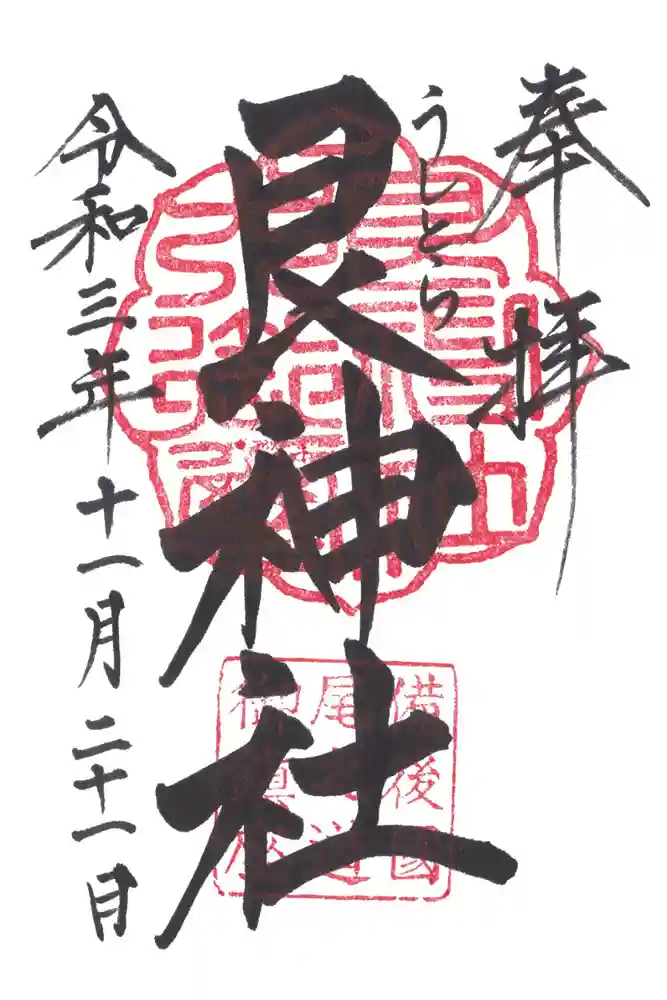 奉拝
うしとら
艮神社
令和三年十一月二十一日
備後國
尾道
御鎮座